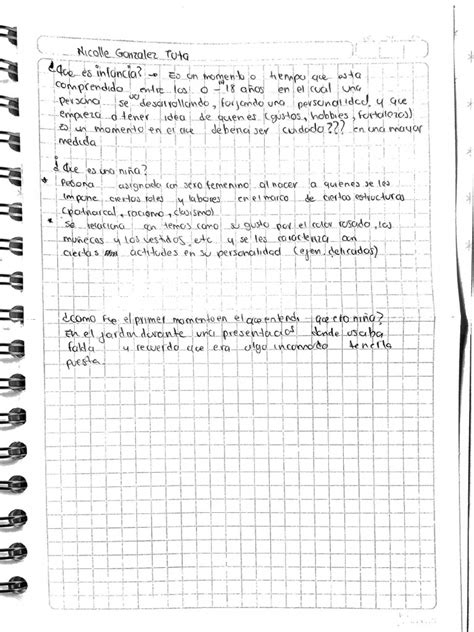 Nicolle Gonzalez Tuta
¿Que es infancia? → Es un momento o tiempo que esta
comprendido entre los 0 - 18 años en el cual una
persona se desarrollando, forjando una personalidad, y que
empieza a tener idea de quienes (gustos, hobbies, fortalezas)
Es un momento en el que deberia ser cuidado??? en una mayor
medida
¿Que es una niña?
* Persona asignada con sexo femenino al nacer a quienes se les
impone ciertos roles y labores en el marco de ciertas estructuras
(patriarcal, racismo, clasismo)
* Se relaciona con temas como su gusto por el color rosado, las
muñecas y los vestidos, etc y se les caracteriza con
ciertas actitudes en su personalidad (ejem, delicadas)
¿Como fue el primer momento en el que entendi que era niña?
En el jardin durante una presentacion donde usaba
falda y recuerdo que era algo incomodo tenerla
puesta.